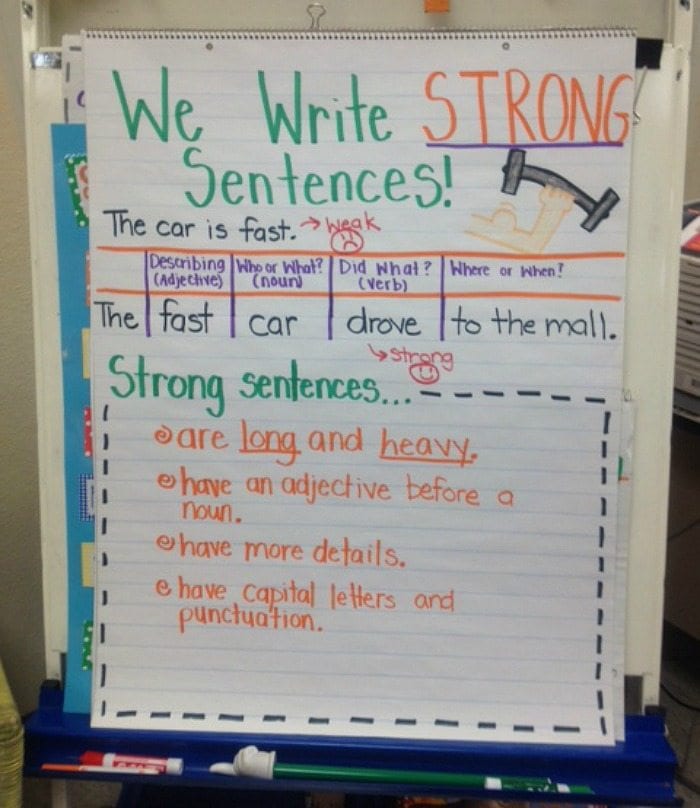 We Write STRONG
Sentences!
The car is fast. → Weak
Describing (Adjective) Who or What? (noun) Did What? (verb) Where or When?
The fast car drove to the mall.
↳ strong
Strong sentences...
are long and heavy.
have an adjective before a
noun.
have more details.
have capital letters and
punctuation.